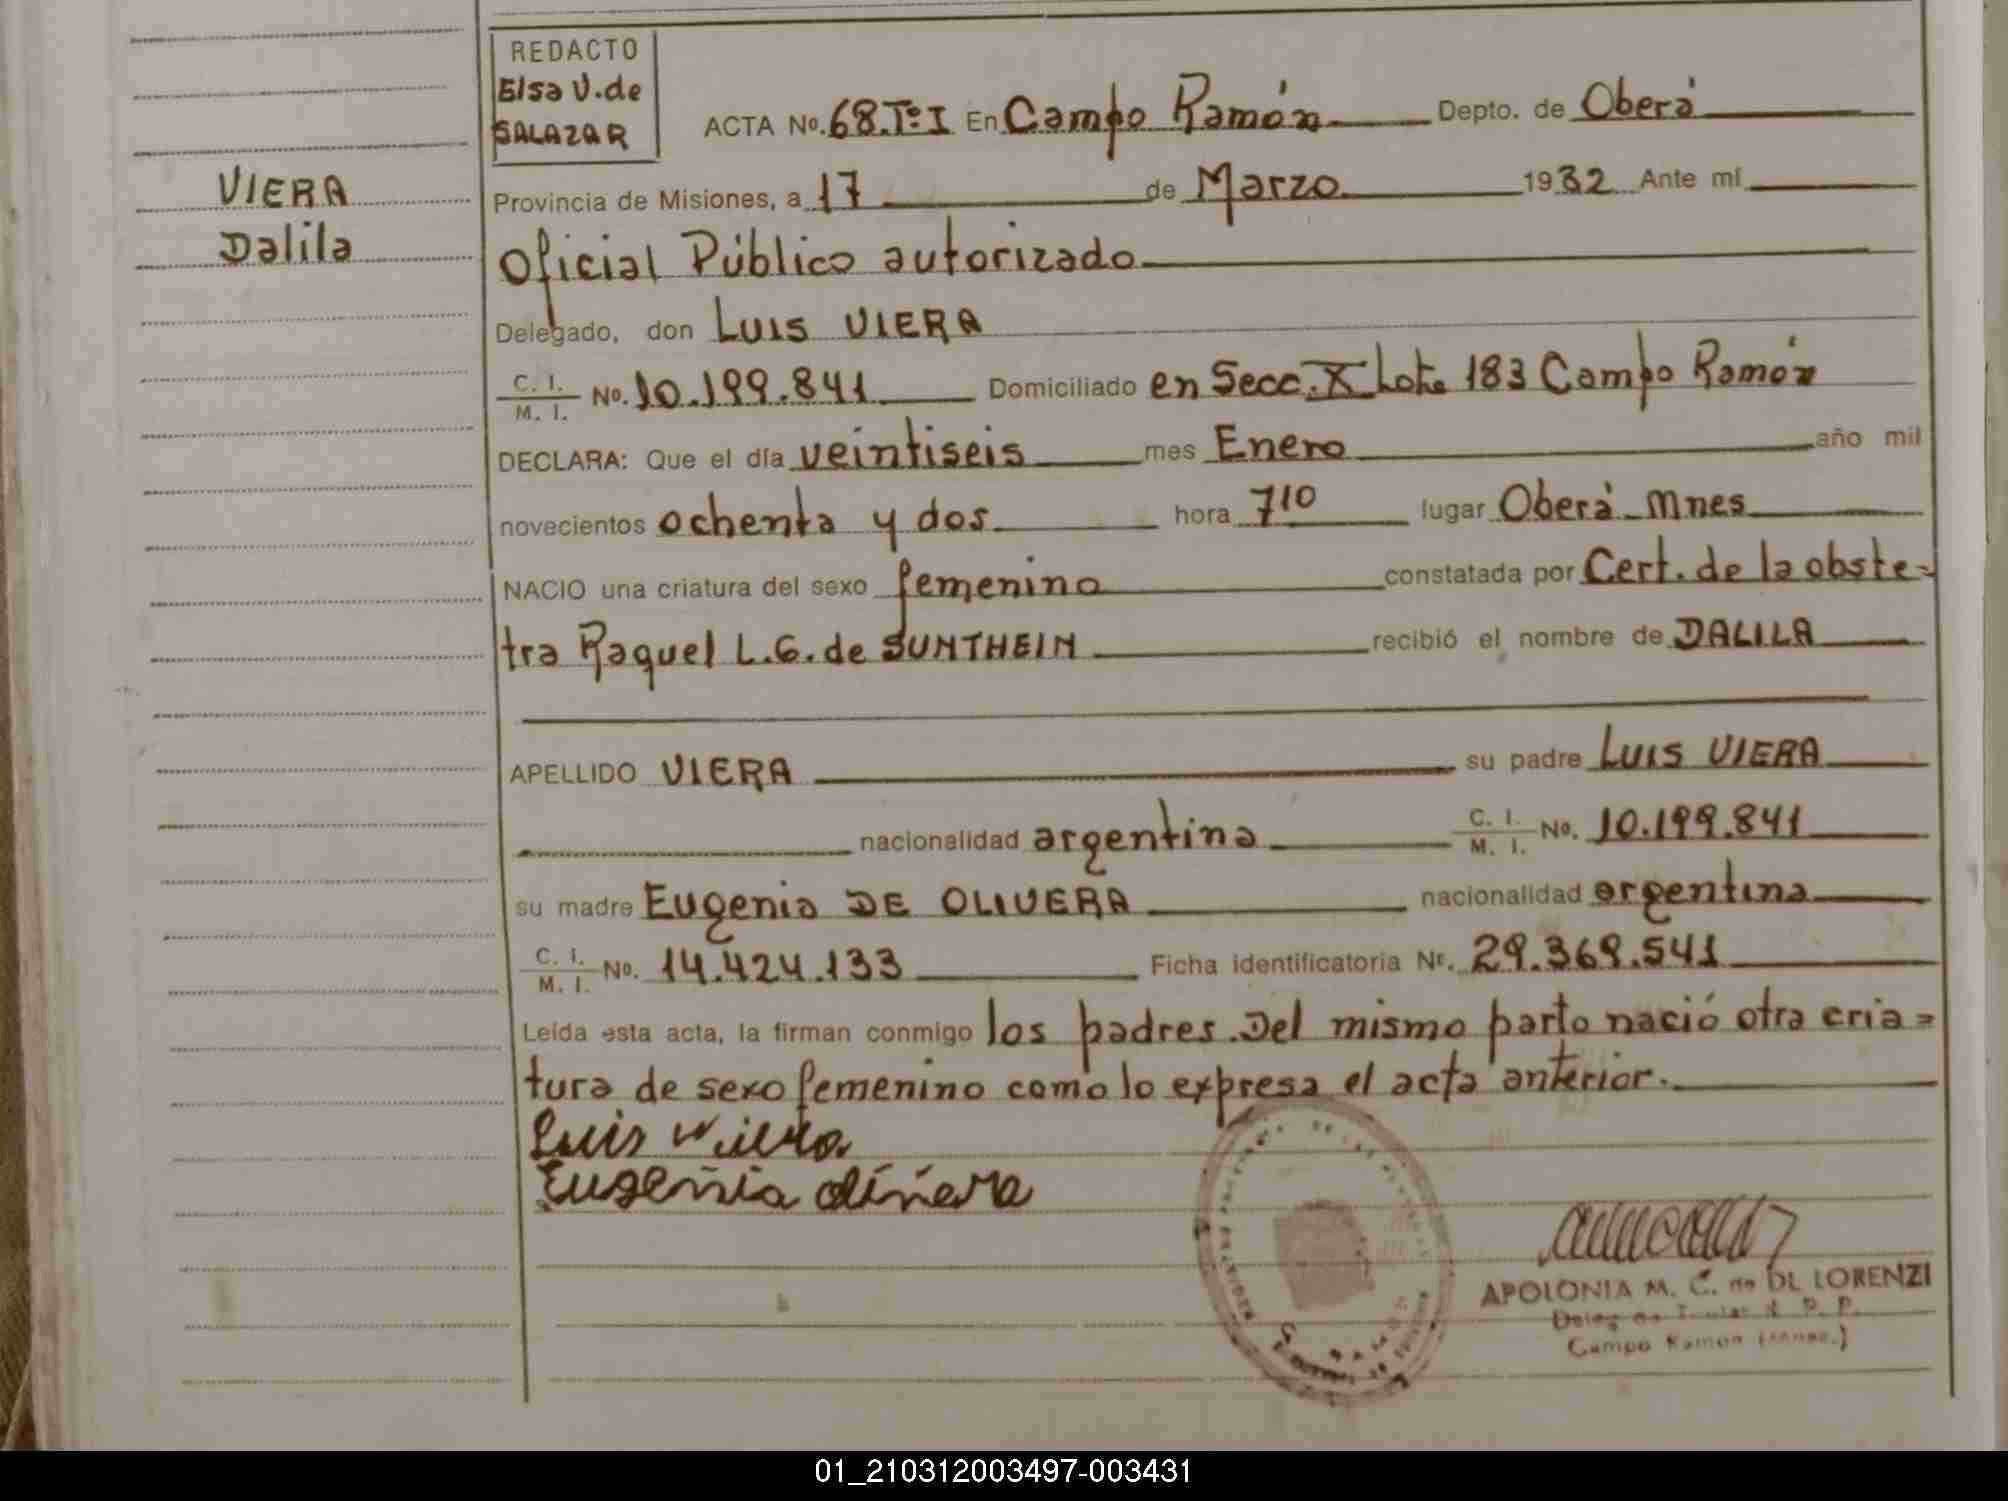 REDACTO
Elsa V. de
SALAZAR
ACTA No. 68.Tº I En Campo Ramón Depto. de Oberá
VIERA
Dalila
Provincia de Misiones, a 17 de Marzo 1982 Ante mí
Oficial Público autorizado
Delegado, don LUIS VIERA
C. I.
M. I. No. 10.199.841 Domiciliado en Secc. X Lote 183 Campo Ramón
DECLARA: Que el día veintiseis mes Enero año mil
novecientos ochenta y dos hora 7 10 lugar Oberá Mnes
NACIO una criatura del sexo femenino constatada por Cert. de la obste=
tra Raquel L.G. de SUNTHEIM recibió el nombre de DALILA
APELLIDO VIERA su padre LUIS VIERA
nacionalidad argentina C. I. M. I. No. 10.199.841
su madre Eugenia DE OLIVERA nacionalidad argentina
C. I.
M. I. No. 14.424.133 Ficha identificatoria Nr. 29.369.541
Leída esta acta, la firman conmigo los padres. Del mismo parto nació otra cria=
tura de sexo femenino como lo expresa el acta anterior.
Luis Viera
Eugenia
APOLONIA M. C. de DL LORENZI
Campo Ramon
01_210312003497-003431